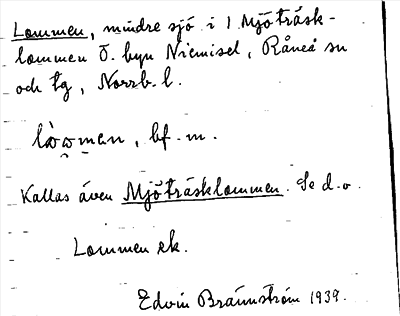 Lommen, mindre sjö i l Mjöträsk-
lommen Ö. byn Niemisel, Råneå sn
och tg, Norrb. l.
lòmman, bf. m.
Kallas även Mjöträsklommen. Se d. o.
Lommen ek.
Edvin Brännström 1939.